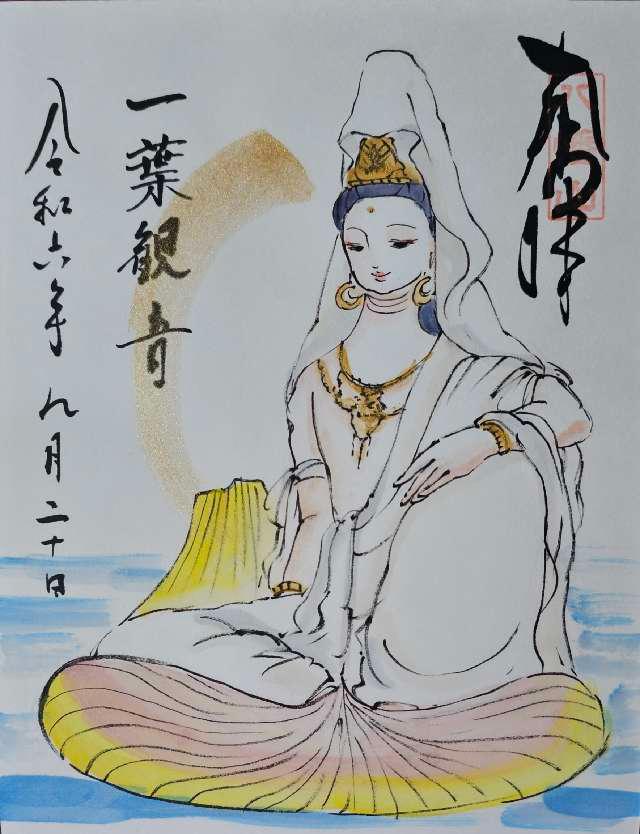 奉拝
一葉観音
令和六年 九月二十日